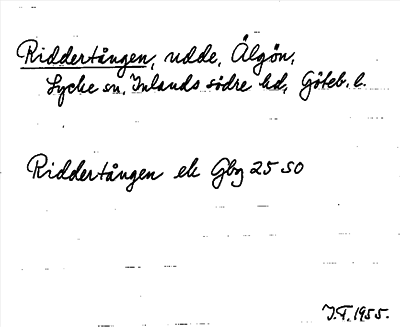 Riddertången, udde, Älgön,
Lycke sn, Inlands södre hd, Göteb. l.
Riddertången ek Gbg 25 SO
J.F. 1955.